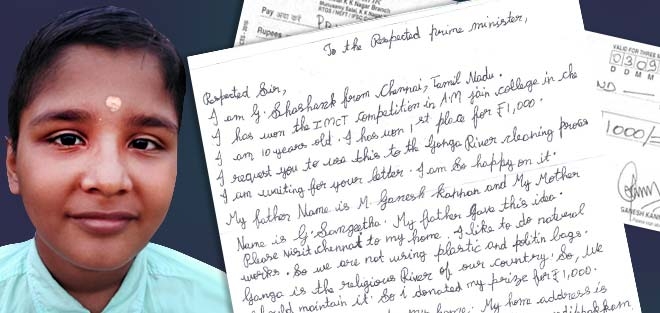 K K Nagar Branch
Pay
Rupees
To the Respected prime minister,
Respected Sir,
I am G. Shashank from Chennai, Tamil Nadu.
I has won the IMCT competition in A.M Jain college in the
I am 10 years old. I has won 1st place for ₹1,000.
I request you to use this to the Ganga River cleaning
I am waiting for your letter. I am so happy on it.
My father Name is M. Ganesh Kannan and My Mother
Name is G. Sangeetha. My father Gave this idea.
Please visit chennai to my home. I like to do natural
works. So we are not using plastic and politin bags.
Ganga is the religious River of our country. So, we
should maintain it. So i donated my prize for ₹1,000.
my home. My home address is
VALID FOR THREE
0 3 0 9
D D M M
1000/-
GANESH KANN